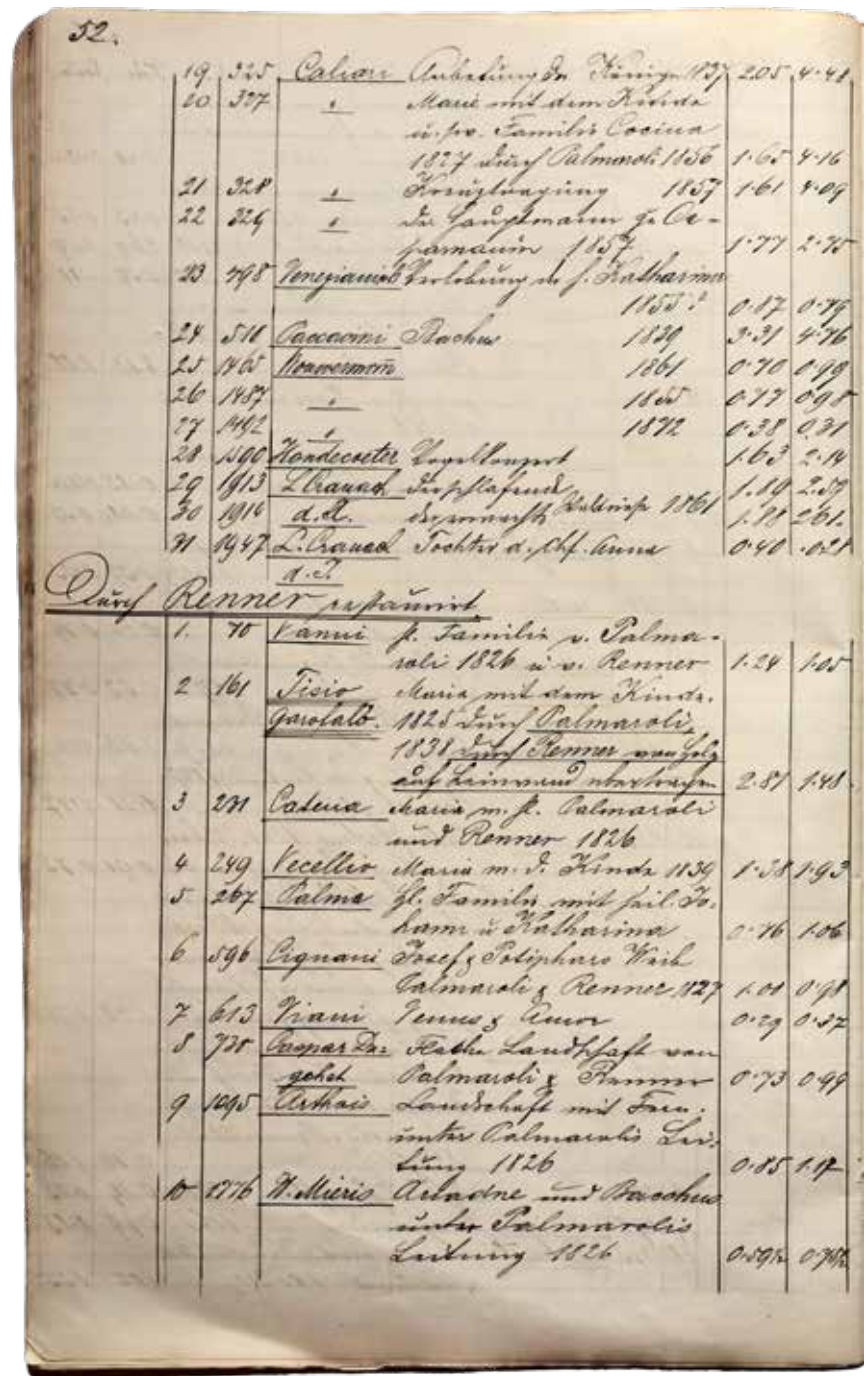 52.
19 325 Caliari Anbetung der Könige 1837 2.05 4.48
20 327 " Maria mit dem Kinde
u. sw. Familie Cocina
1827 durch Palmaroli 1856 1.65 4.16
21 328 " Kreuztragung 1857 1.61 4.09
22 329 " Der Hauptmann zu Ca-
parnaum 1857 1.77 2.75
23 498 Venezianisch Verlobung der h. Katharina
1855? 0.87 0.79
24 510 Bachus 1839 3.31 4.76
25 1465 Wouwermann 1861 0.70 0.99
26 1487 " 1855 0.77 0.98
27 1492 " 1872 0.38 0.31
28 1590 Hondecoeter Vogelkonzert 1.63 2.14
29 1913 L. Cranach Der schlafende 1.89 2.59
30 1914 d. Ä. der erwachte 1861 1.98 2.61
31 1947 L. Cranach Tochter d. Anna 0.40 0.28
d. J.
Durch Renner restaurirt
1. 70 Vanni h. Familie v. Palma-
roli 1826 u. v. Renner 1.24 1.05
2 161 Tisio Maria mit dem Kinde.
Garofalo. 1825 durch Palmaroli,
1838 durch Renner von Holz
auf Leinwand übertragen 2.81 1.48
3 Catena Maria m. h. Palmaroli
und Renner 1826
4 249 Vecellio Maria m. d. Kinde 1839 1.38 1.93
5 267 Palma Hl. Familie mit heil. Jo-
hann u. Katharina 0.76 1.06
6 596 Cignani Josef & Potiphars Weib
Palmaroli & Renner 1827 1.00 0.98
7 613 Viani Venus & Amor 0.29 0.37
8 730 Caspar Du- Landschaft von
ghet Palmaroli & Renner 0.73 0.99
9 1095 Arthois Landschaft mit
unter Palmarolis Lei-
tung 1826 0.85 1.17
10 1776 W. Mieris Ariadne und Bacchus
unter Palmarolis
Leitung 1826 0.59½